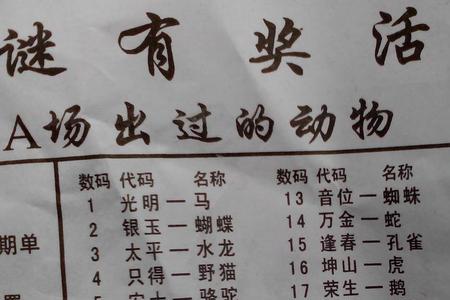 谜有奖活
A场出过的动物
数码 代码 名称 数码 代码 名称
1 光明一马 13 音位一蜘蛛
2 银玉一蝴蝶 14 万金一蛇
期单 3 太平一水龙 15 逢春一孔雀
4 只得一野猫 16 坤山一虎
骆驼 17 荣生一鹅